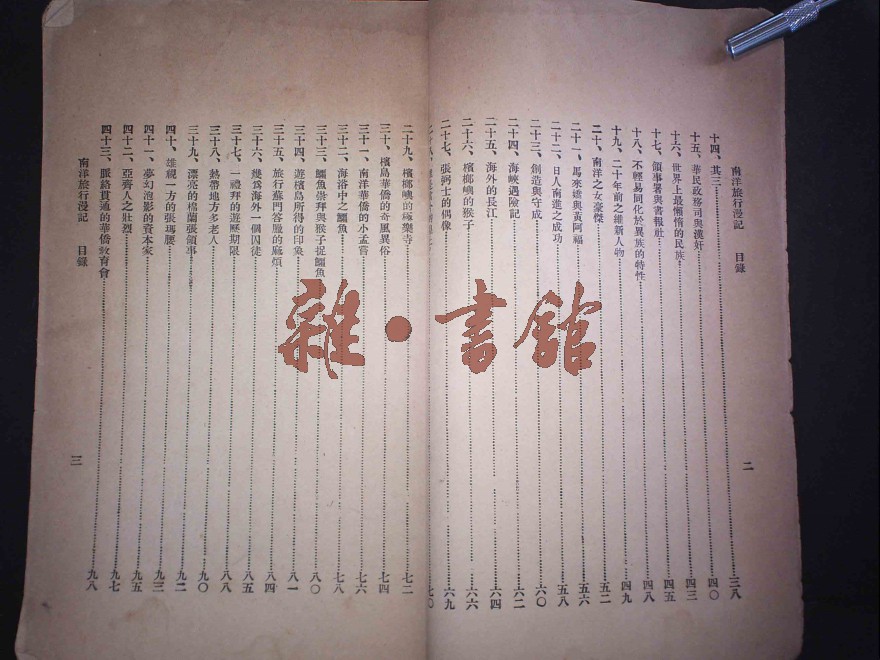 南洋旅行漫記 目錄 二
十四、其三 三八
十五、華民政務司與漢奸 四〇
十六、世界上最懶惰的民族 四三
十七、領事署與書報社 四五
十八、不輕易同化於異族的特性 四八
十九、二十年前之維新人物 四九
二十、南洋之女豪傑 五二
二十一、馬來虛與黃阿福 五六
二十二、日人南進之成功 五八
二十三、創造與守成 六〇
二十四、海峽遇險記 六二
二十五、海外的長江 六四
二十六、檳榔嶼的猴子 六六
二十七、張弼士的偶像 六九
七〇
二十九、檳榔嶼的極樂寺 七二
三十、檳島華僑的奇風異俗 七四
三十一、南洋華僑的小孟嘗 七六
三十二、海浴中之鱷魚 七八
三十三、鱷魚崇拜與猴子捉鱷魚 八〇
三十四、遊檳島所得的印象 八一
三十五、旅行蘇門答臘的麻煩 八四
三十六、幾為海外一個囚徒 八五
三十七、一禮拜的遊歷期限 八八
三十八、熱帶地方多老人 九〇
三十九、漂亮的棉蘭張領事 九二
四十、雄視一方的張瑪腰 九三
四十一、夢幻泡影的資本家 九五
四十二、亞齊人之壯烈 九七
四十三、脈絡貫通的華僑教育會 九八
南洋旅行漫記 目錄 三
雜·書館